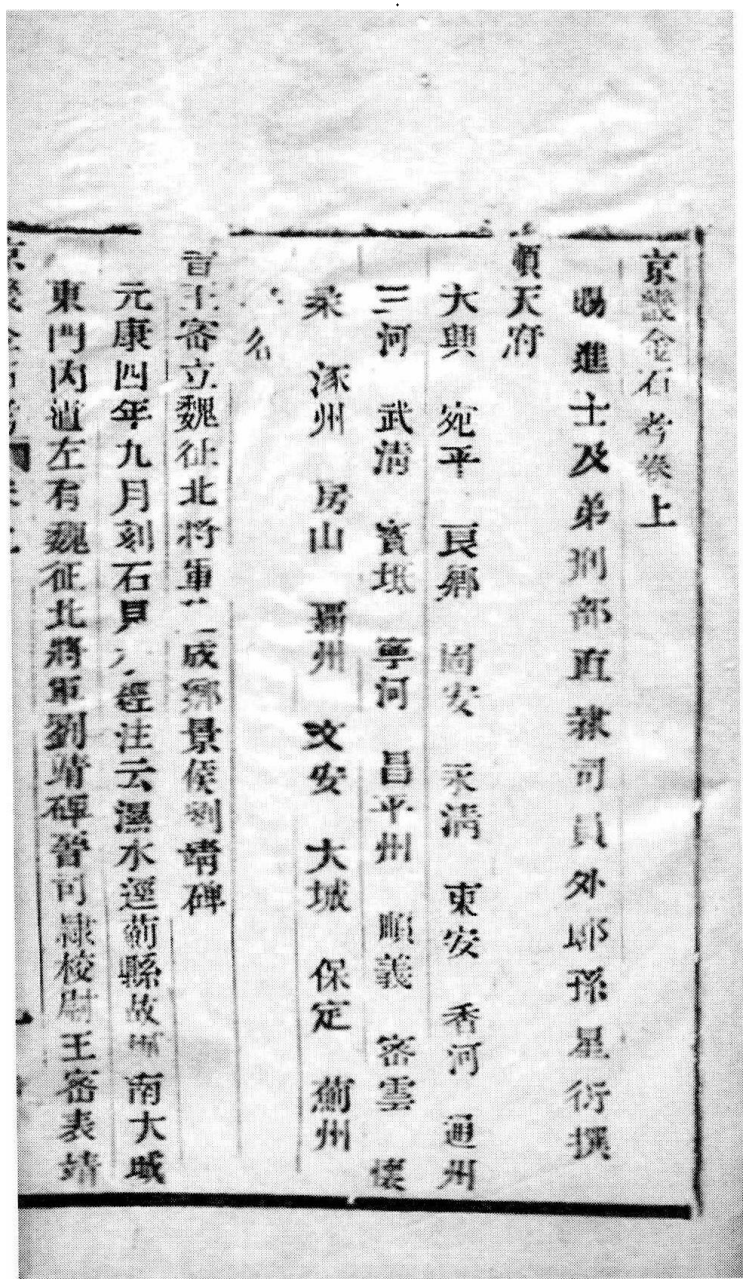 京畿金石考卷上
賜進士及弟刑部直隸司員外郎孫星衍撰
順天府
大興 宛平 良鄉 固安 永清 東安 香河 通州
三河 武清 寶坻 寧河 昌平州 順義 密雲 懷
柔 涿州 房山 霸州 文安 大城 保定 薊州
名
晉王密立魏征北將軍成鄉景侯劉靖碑
元康四年九月刻石見水經注云濕水逕薊縣故城南大城
東門內道左有魏征北將軍劉靖碑晉司隸校尉王密表靖
京畿金石考